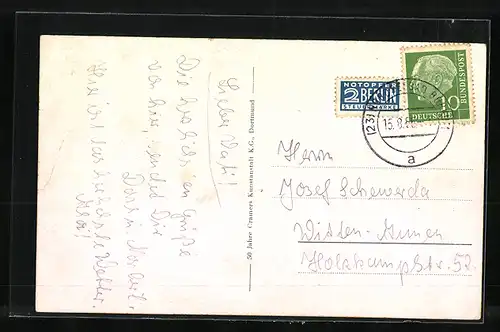 Lieber Vati!
Die herzlichsten Grüße
von hier, sendet Dir
Dorn u. Norbert.
Hier ist das herrlichste Wetter.
50 Jahre Cramers Kunstanstalt K.G., Dortmund
NOTOPFER
2 BERLIN
STEUERMARKE
10
DEUTSCHE
BUNDESPOST
15.8.
a
Herrn
Josef Schewerda
Witten-Annen
Holzkampstr. 52.